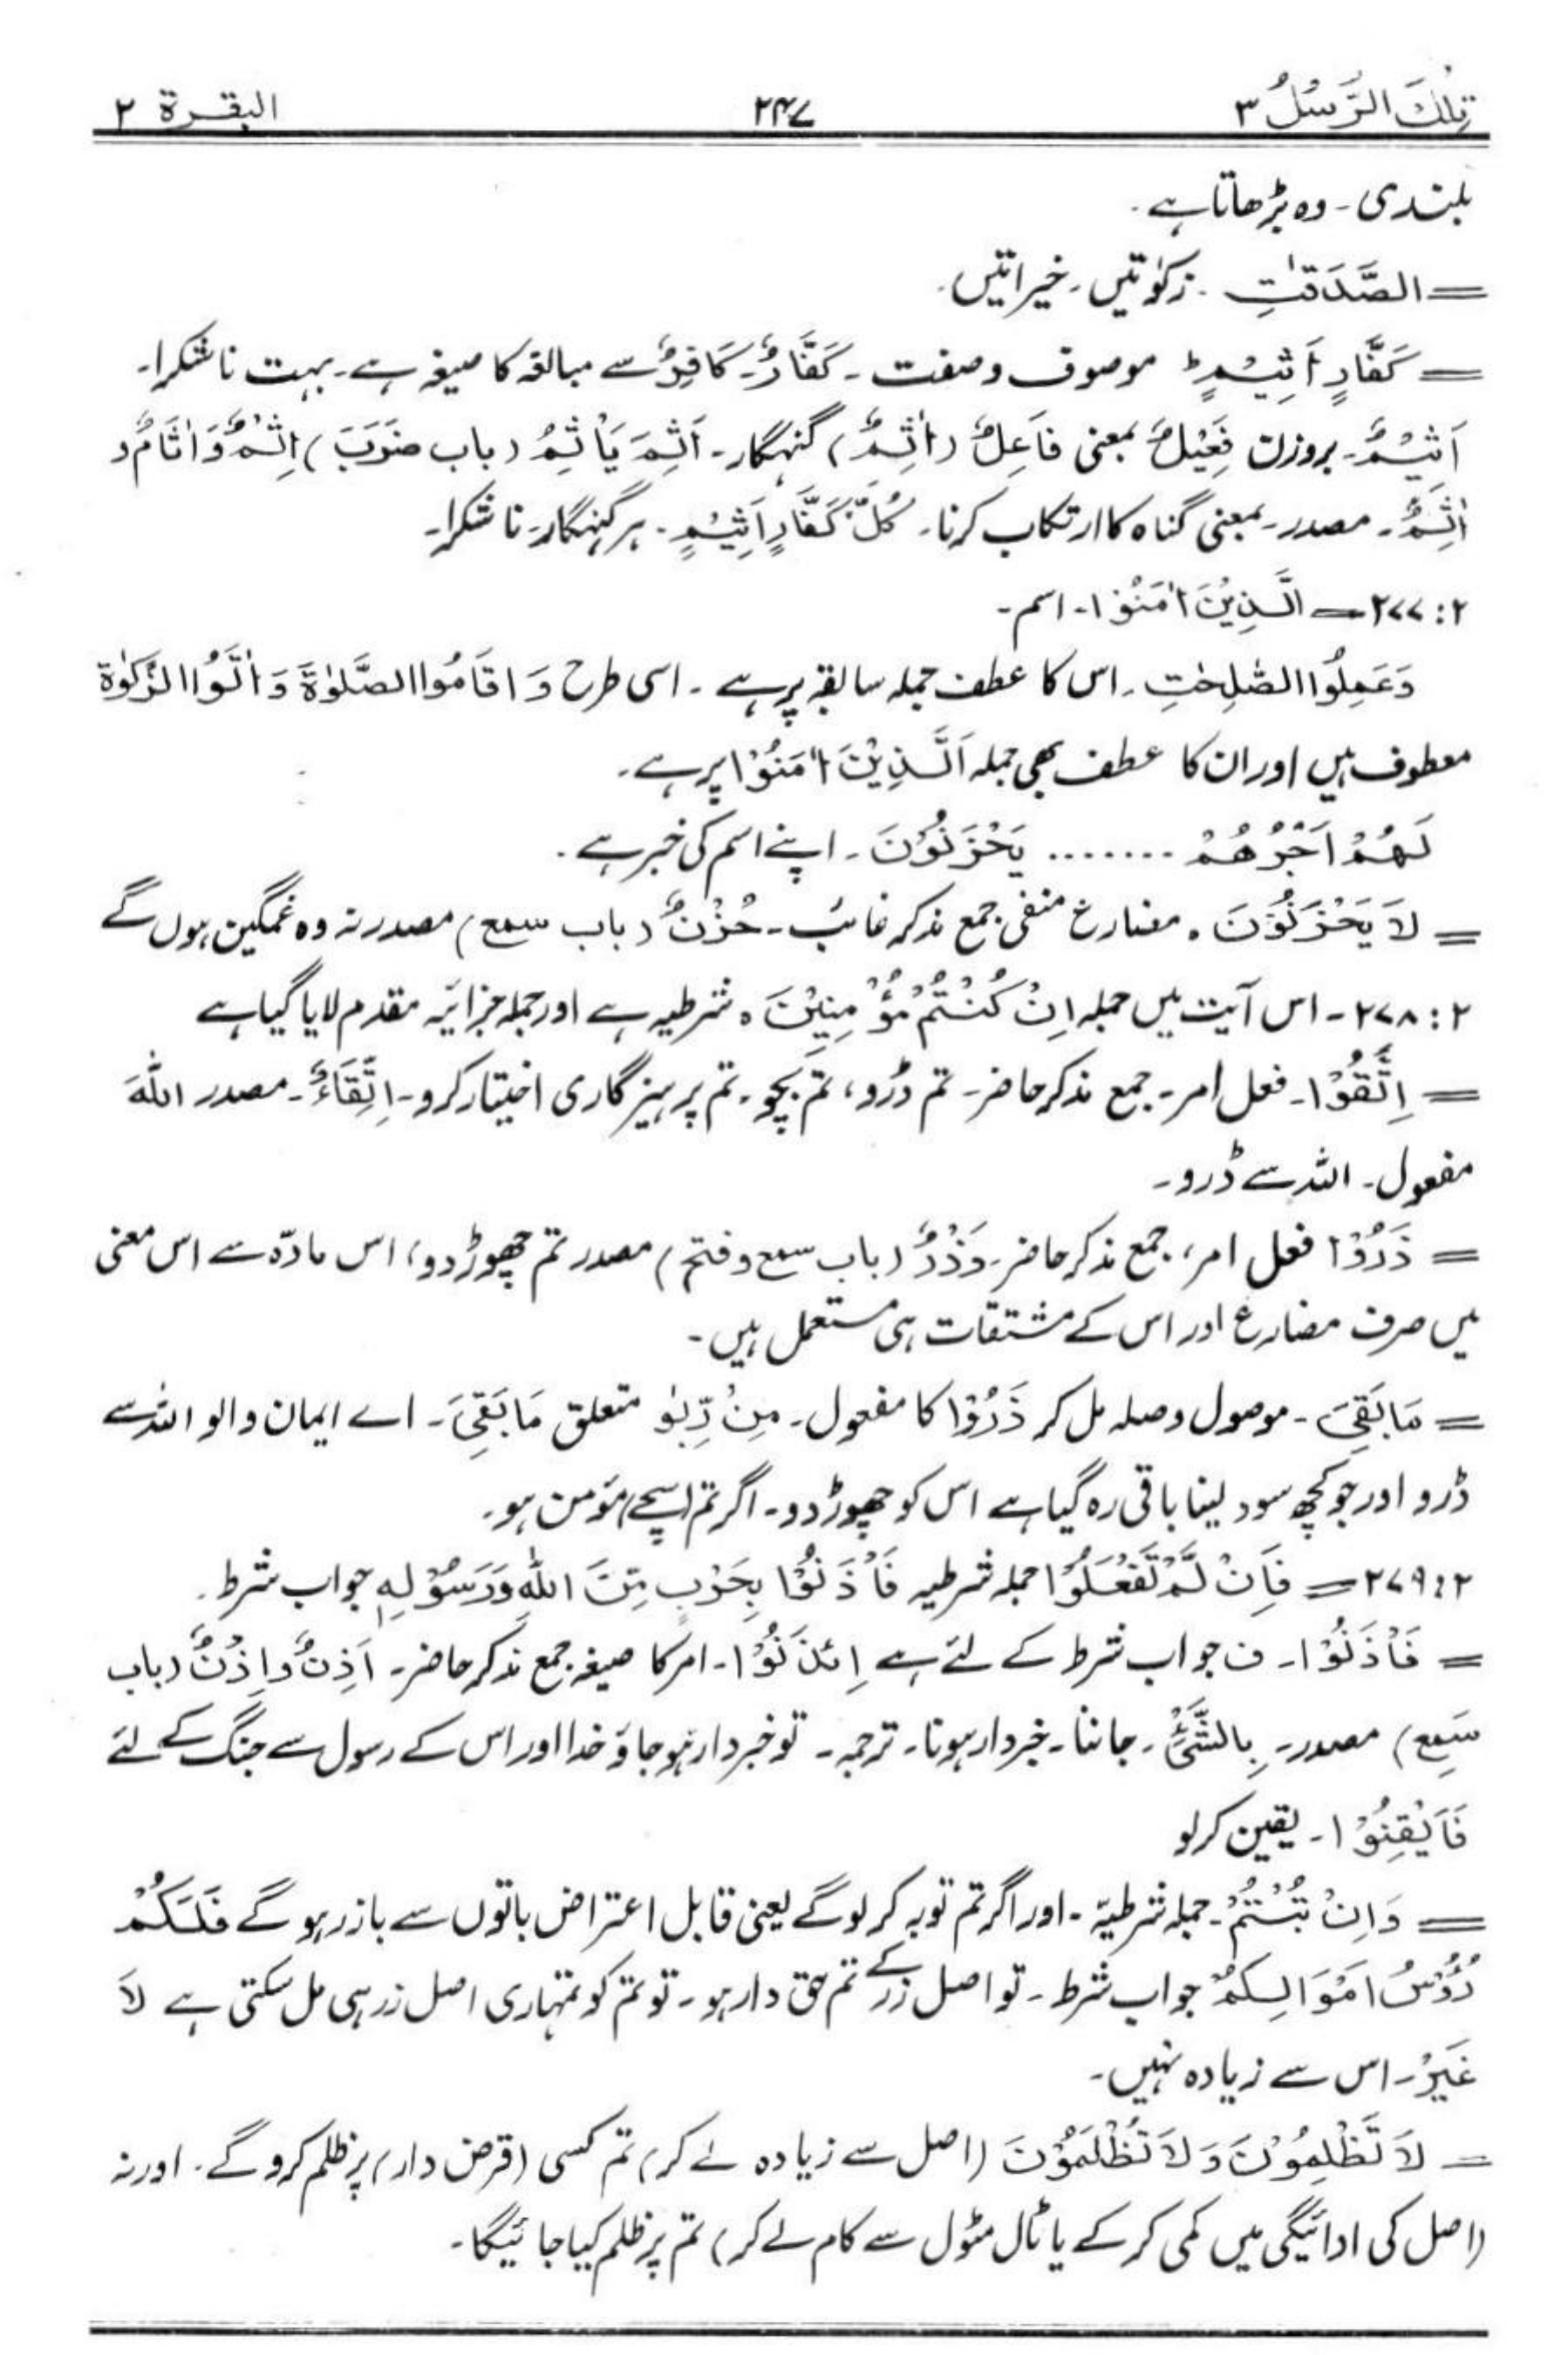 تِلْكَ الرُّسُلُ ۳ ۲۴۷ البقرة ۲
بلندی۔ وہ بڑھاتا ہے۔
= الصَّدَقٰتِ۔ زکوٰتیں۔ خیراتیں۔
= كَفَّارٍ اَثِيْمٍ ط موصوف وصفت۔ كَفَّارٌ۔ كَافِرٌ سے مبالغہ کا صیغہ ہے۔ بہت ناشکرا۔
اَثِيْمٌ۔ بروزن فَعِيْلٌ بمعنی فَاعِلٌ (اٰثِمٌ) گنہگار۔ اَثِمَ يَاْثِمُ (باب ضَرَبَ) اِثْمٌ وَاَثَامٌ و
اٰثِمٌ۔ مصدر۔ بمعنی گناہ کا ارتکاب کرنا۔ كُلَّ كَفَّارٍ اَثِيْمٍ۔ ہر گنہگار۔ ناشکرا۔
۲: ۲۷۷ = اَلَّذِيْنَ اٰمَنُوْا۔ اسم۔
وَعَمِلُوا الصّٰلِحٰتِ۔ اس کا عطف جملہ سابقہ پر ہے۔ اسی طرح وَاَقَامُوا الصَّلوٰةَ وَاٰتَوُا الزَّكوٰةَ
معطوف ہیں اور ان کا عطف بھی جملہ اَلَّذِيْنَ اٰمَنُوْا پر ہے۔
لَهُمْ اَجْرُهُمْ ........ يَحْزَنُوْنَ۔ اپنے اسم کی خبر ہے۔
= لَا يَحْزَنُوْنَ ۔ مضارع منفی جمع مذکر غائب۔ حُزْنٌ (باب سمع) مصدر نہ وہ غمگین ہوں گے
۲: ۲۷۸۔ اس آیت میں جملہ اِنْ كُنْتُمْ مُّؤْمِنِيْنَ ہ شرطیہ ہے اور جملہ جزائیہ مقدم لایا گیا ہے
= اِتَّقُوْا۔ فعل امر۔ جمع مذکر حاضر۔ تم ڈرو، تم بچو۔ تم پرہیزگاری اختیار کرو۔ اِتِّقَاءٌ۔ مصدر اللّٰهَ
مفعول۔ اللہ سے ڈرو۔
= ذَرُوْا فعل امر، جمع مذکر حاضر۔ وَذْرٌ (باب سمع و فتح) مصدر تم چھوڑ دو، اس مادّہ سے اس معنی
میں صرف مضارع اور اس کے مشتقات ہی مستعمل ہیں۔
= مَا بَقِيَ۔ موصول وصلہ مل کر ذَرُوْا کا مفعول۔ مِنْ رِّبٰو متعلق مَا بَقِيَ۔ اے ایمان والو اللہ سے
ڈرو اور جو کچھ سود لینا باقی رہ گیا ہے اس کو چھوڑ دو۔ اگر تم (سچے) مؤمن ہو۔
۲: ۲۷۹ = فَاِنْ لَّمْ تَفْعَلُوْا جملہ شرطیہ فَاْذَنُوْا بِحَرْبٍ مِّنَ اللّٰهِ وَرَسُوْلِهٖ جواب شرط۔
= فَاْذَنُوْا۔ ف جواب شرط کے لئے ہے اِئْذَنُوْا۔ امر کا صیغہ جمع مذکر حاضر۔ اَذِنٌ وَاِذْنٌ (باب
سَمِع) مصدر۔ بِالشَّيْءِ۔ جاننا۔ خبردار ہونا۔ ترجمہ۔ تو خبردار ہو جاؤ خدا اور اس کے رسول سے جنگ کے لئے
فَاَيْقِنُوْا۔ یقین کر لو
= وَاِنْ تُبْتُمْ۔ جملہ شرطیہ۔ اور اگر تم توبہ کر لو گے یعنی قابل اعتراض باتوں سے باز رہو گے فَلَكُمْ
رُءُوْسُ اَمْوَالِكُمْ جواب شرط۔ تو اصل زر کے تم حق دار ہو۔ تو تم کو تمہاری اصل زر ہی مل سکتی ہے لَا
غَيْرُ۔ اس سے زیادہ نہیں۔
= لَا تَظْلِمُوْنَ وَلَا تُظْلَمُوْنَ (اصل سے زیادہ لے کر) تم کسی (قرض دار) پر ظلم کرو گے۔ اور نہ
(اصل کی ادائیگی میں کمی کر کے یا ٹال مٹول سے کام لے کر) تم پر ظلم کیا جائیگا۔